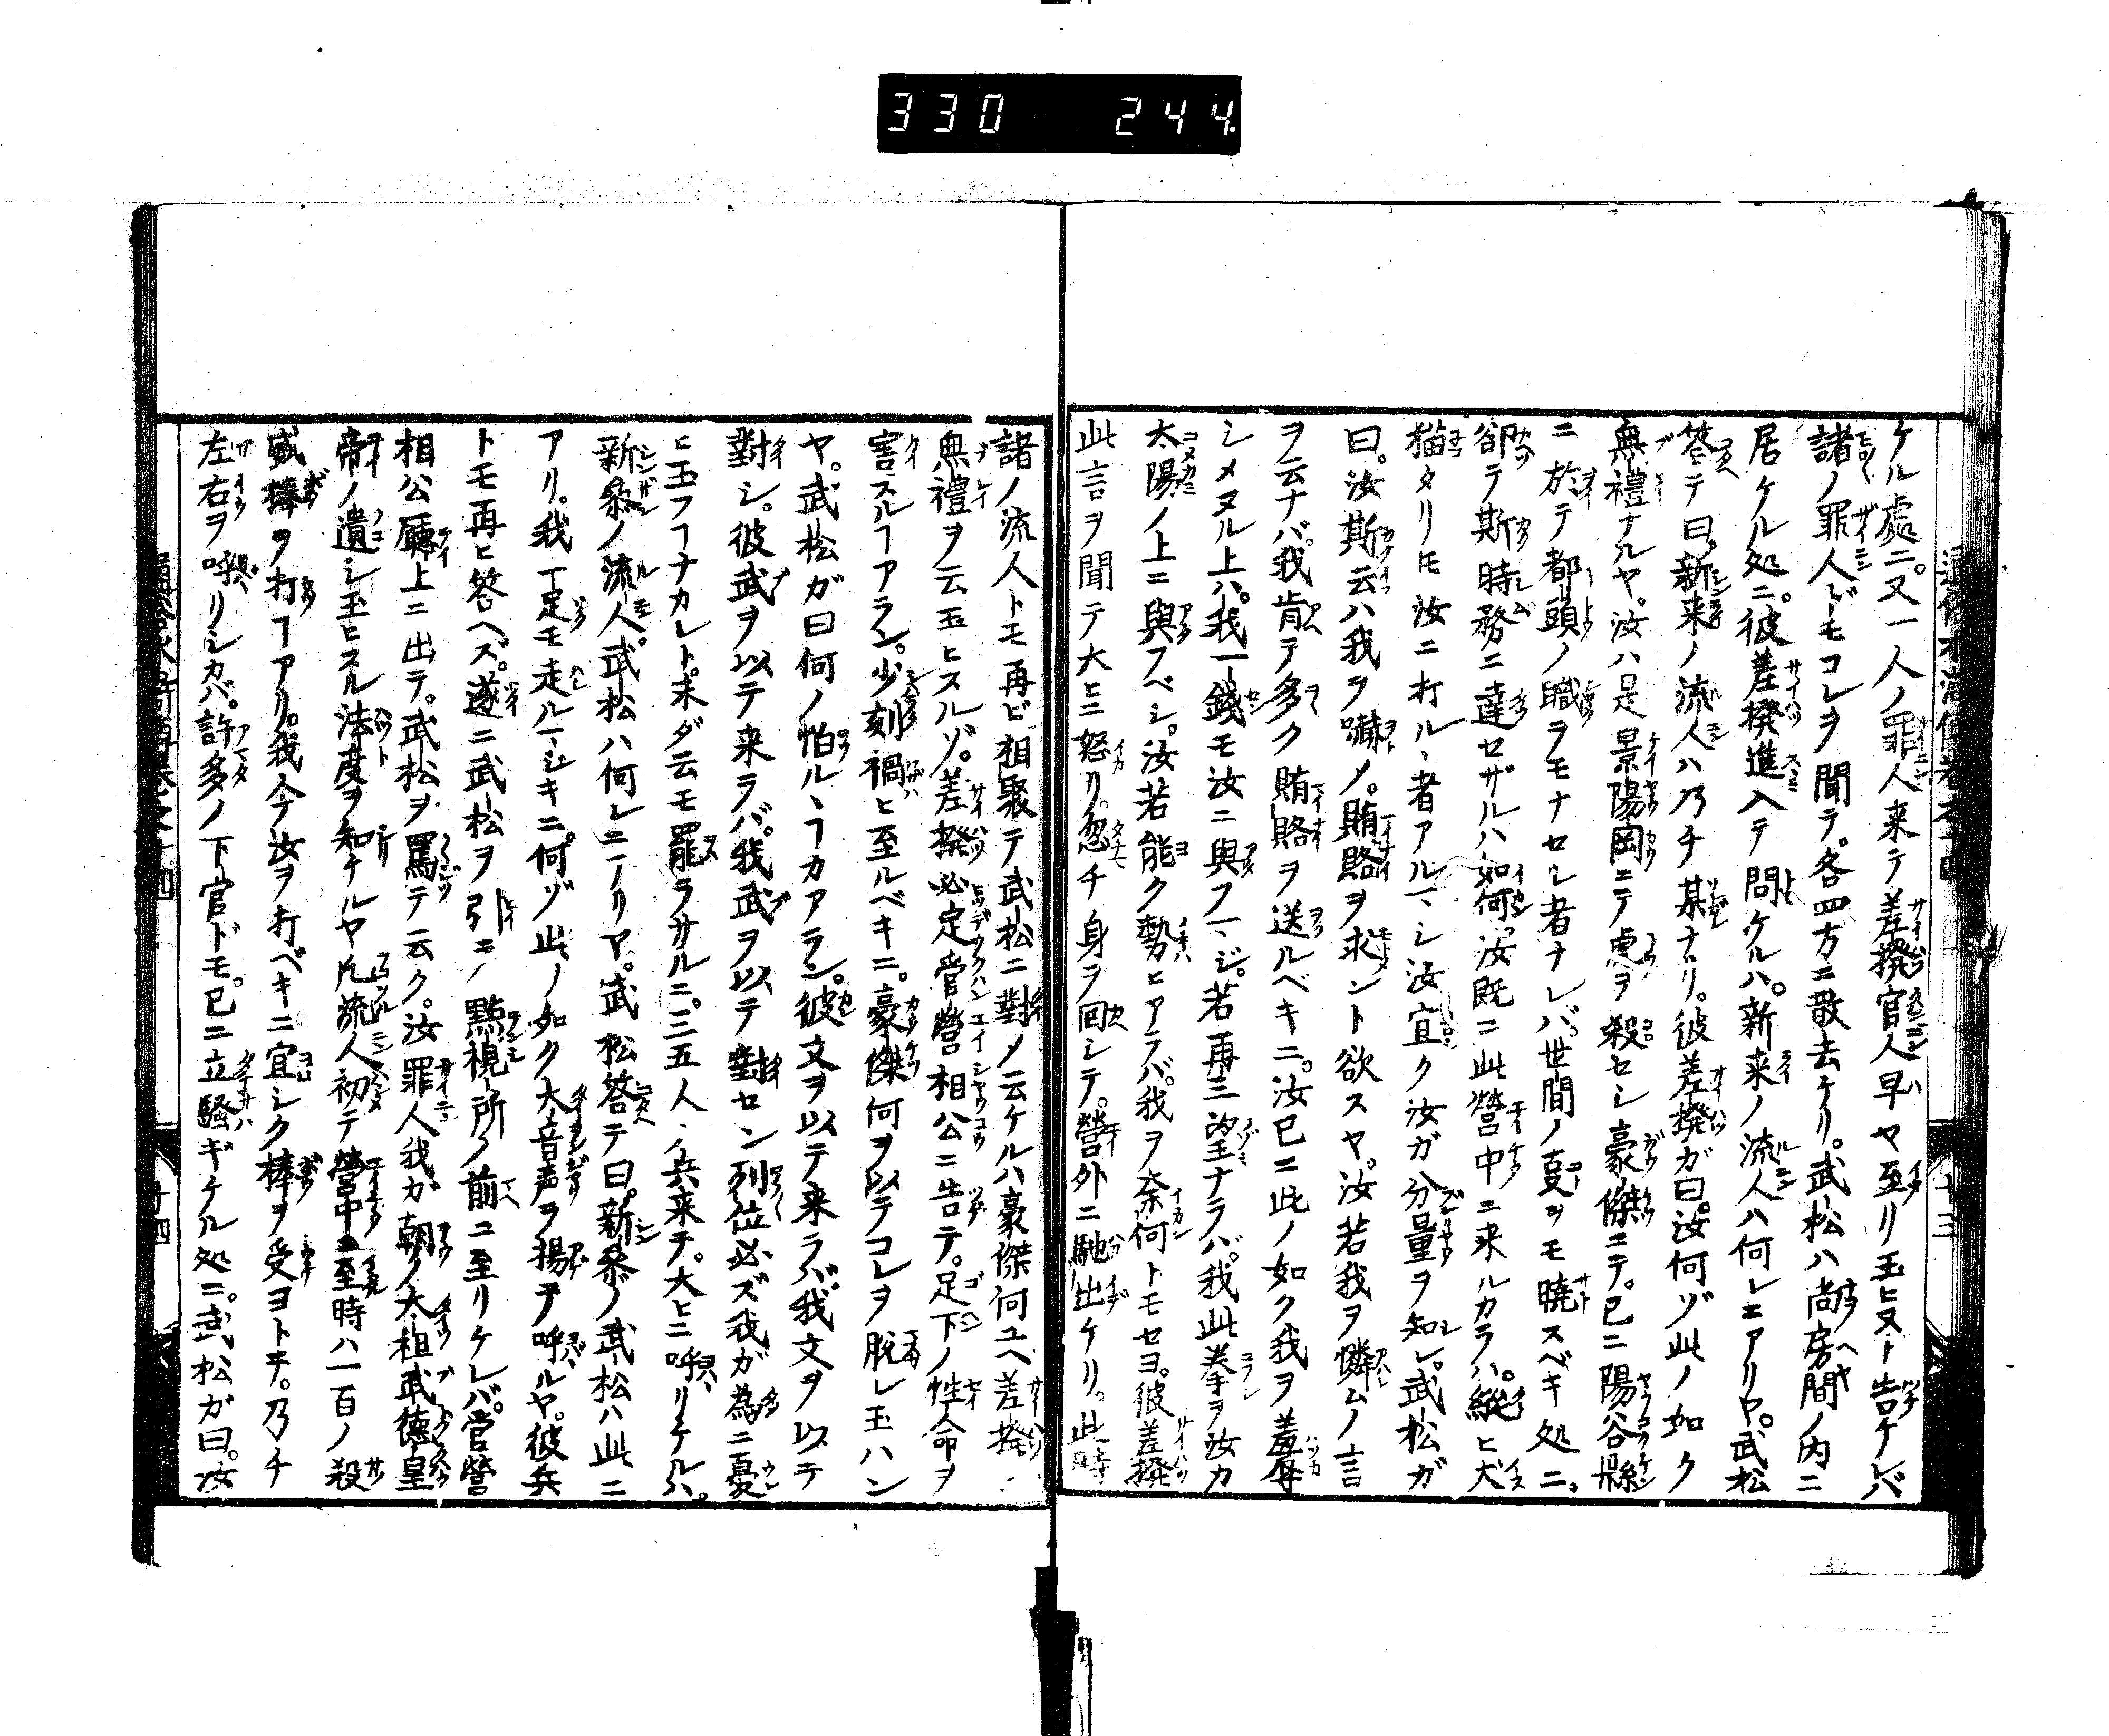 330 244
ケル處ニ。又一人ノ罪人来テ差撥官人早ヤ至リ玉ヒヌト告ケレバ
諸ノ罪人ドモコレヲ聞テ。各四方ニ散去ケリ。武松ハ尚房間ノ内ニ
居ケル処ニ。彼差撥進入テ問ケルハ。新来ノ流人ハ何レニアリヤ。武松
答テ曰。新来ノ流人ハ乃チ某ナリ。彼差撥ガ曰。汝何ゾ此ノ如ク
無禮ナルヤ。汝ハ是景陽岡ニテ虎ヲ殺セシ豪傑ニテ。已ニ陽谷縣
ニ於テ都頭ノ職ヲモナセシ者ナレバ。世間ノ叓ヲモ曉スベキ処ニ。
卻テ斯時務ニ達セザルハ如何。汝既ニ此營中ニ来ルカラハ。縦ヒ犬
猫タリ𪜈汝ニ打ルヽ者アルマシ汝宜ク汝ガ分量ヲ知レ。武松ガ
曰。汝斯云ハ我ヲ嚇ノ。賄賂ヲ求ント欲スヤ。汝若我ヲ憐ムノ言
ヲ云ナバ。我肯テ多ク賄賂ヲ送ルベキニ。汝已ニ此ノ如ク我ヲ羞辱
シメヌル上ハ。我一錢モ汝ニ與フマジ。若再三望ナラバ。我此拳ヲ汝カ
太陽ノ上ニ與フベシ。汝若能ク勢ヒアラバ。我ヲ奈何トモセヨ。彼差撥
此言ヲ聞テ大ヒニ怒リ。忽チ身ヲ回シテ。營外ニ馳出ケリ。此時
諸ノ流人トモ再ビ相聚テ武松ニ對メ云ケルハ豪傑何ユヘ差撥ニ
無禮ヲ云玉ヒスルゾ。差撥必定管營相公ニ告テ。足下ノ性命ヲ
害スルヿアラン。少刻禍ヒ至ルベキニ。豪傑何ヲ以テコレヲ脱レ玉ハン
ヤ。武松ガ曰何ノ怕ルヽヿカアラン。彼文ヲ以テ来ラバ。我文ヲ以テ
對シ。彼武ヲ以テ来ラバ。我武ヲ以テ對セン列位必ズ我ガ為ニ憂
ヒ玉フヿナカレト。未ダ云モ罷ラサルニ。三五人ノ兵来テ。大ヒニ呼リケルハ。
新参ノ流人武松ハ何レニアリヤ。武松答テ曰。新参ノ武松ハ此ニ
アリ。我一定モ走ルマシキニ。何ゾ此ノ如ク大音声ヲ揚テ呼ルヤ。彼兵
トモ再ヒ答ヘズ。遂ニ武松ヲ引ニ點視所ノ前ニ至リケレバ。管營
相公廳上ニ出テ。武松ヲ罵テ云ク。汝罪人我ガ朝ノ太祖武德皇
帝ノ遺シ玉ヒスル法度ヲ知テルヤ凡流人初テ營中ニ至時ハ一百ノ殺
威棒ヲ打ヿアリ。我今汝ヲ打ベキニ宜シク棒ヲ受ヨトテ。乃チ
左右ヲ呼リシカバ。許多ノ下官ドモ。已ニ立騒ギケル処ニ。武松ガ曰。汝